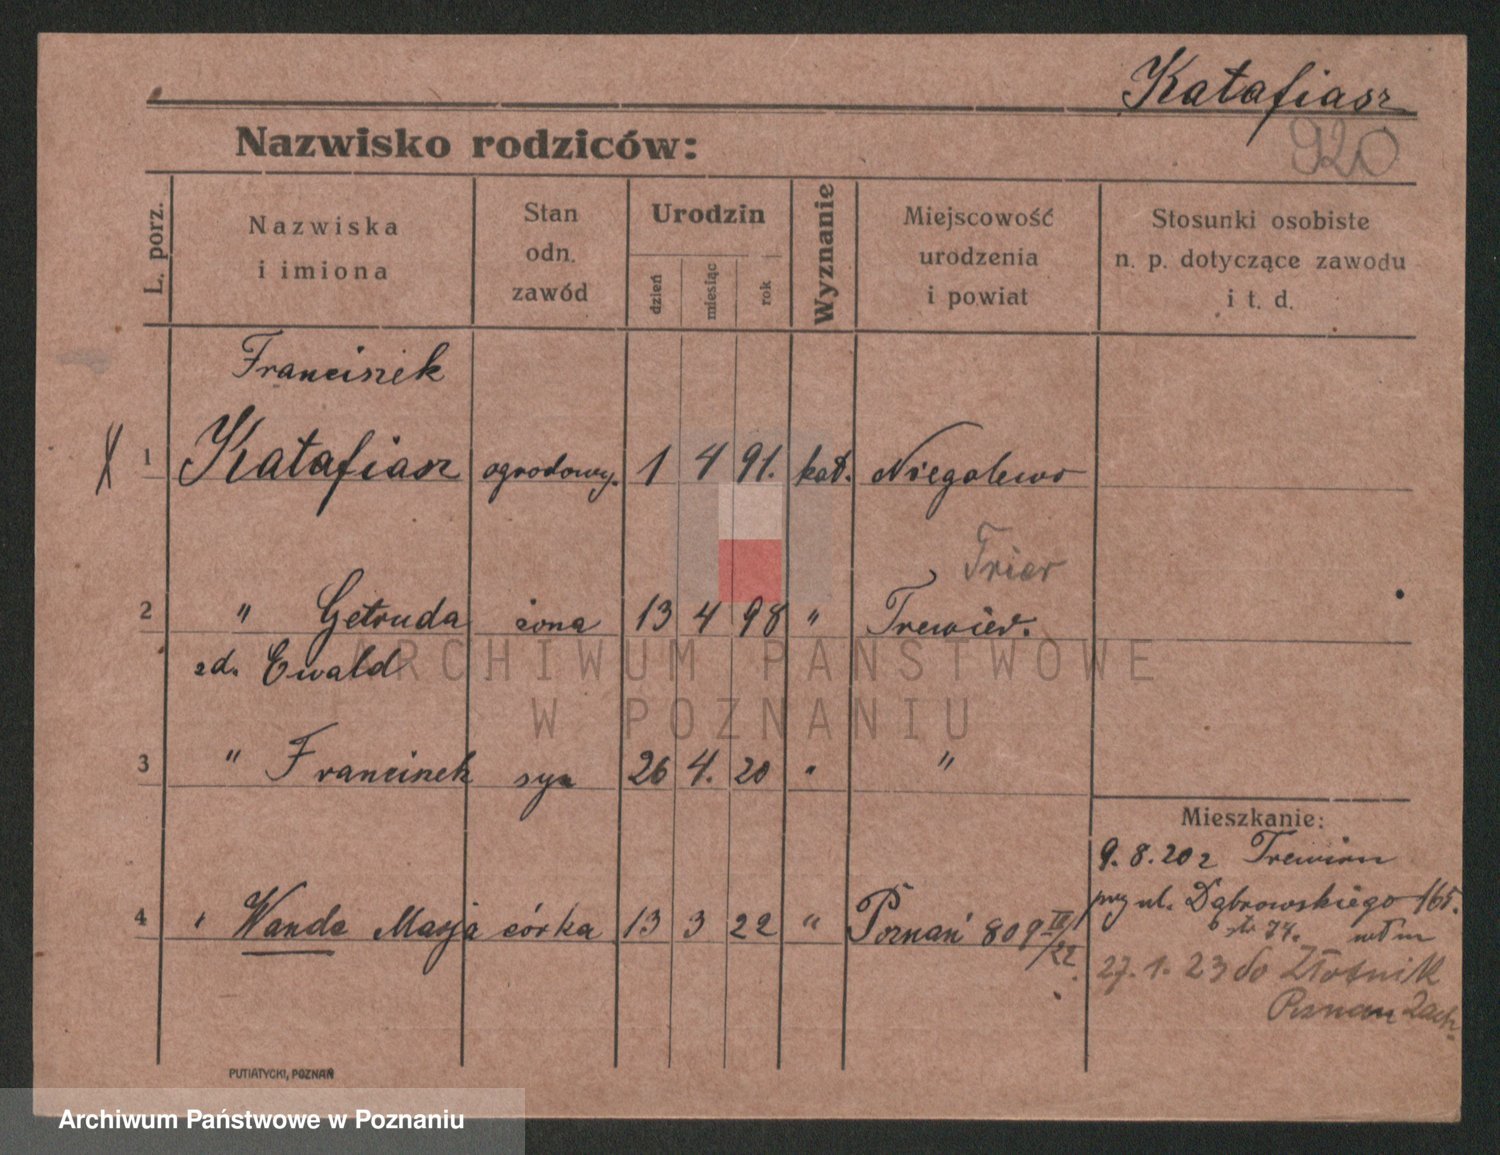 Katafiasz
920
Nazwisko rodziców:
L. porz.
Nazwiska
i imiona
Stan
odn.
zawód
Urodzin
dzień
miesiąc
rok
Wyznanie
Miejscowość
urodzenia
i powiat
Stosunki osobiste
n. p. dotyczące zawodu
i t. d.
Franciszek
1 Katafiasz ogrodowy. 1 4 91. kat. Niegolewo
Trier
2 " Getruda żona 13 4 98 " Trewier.
zd. Ewald
3 " Franciszek syn 26 4. 20 " "
Mieszkanie:
9.8.20 z Trewiru
przy ul. Dąbrowskiego 165.
4 " Wanda Marja córka 13 3 22 " Poznań 809 III/22
74.
27.1.23 do Złotnik
Poznan Zach.
PUTIATYCKI, POZNAŃ
ARCHIWUM PAŃSTWOWE
W POZNANIU
Archiwum Państwowe w Poznaniu